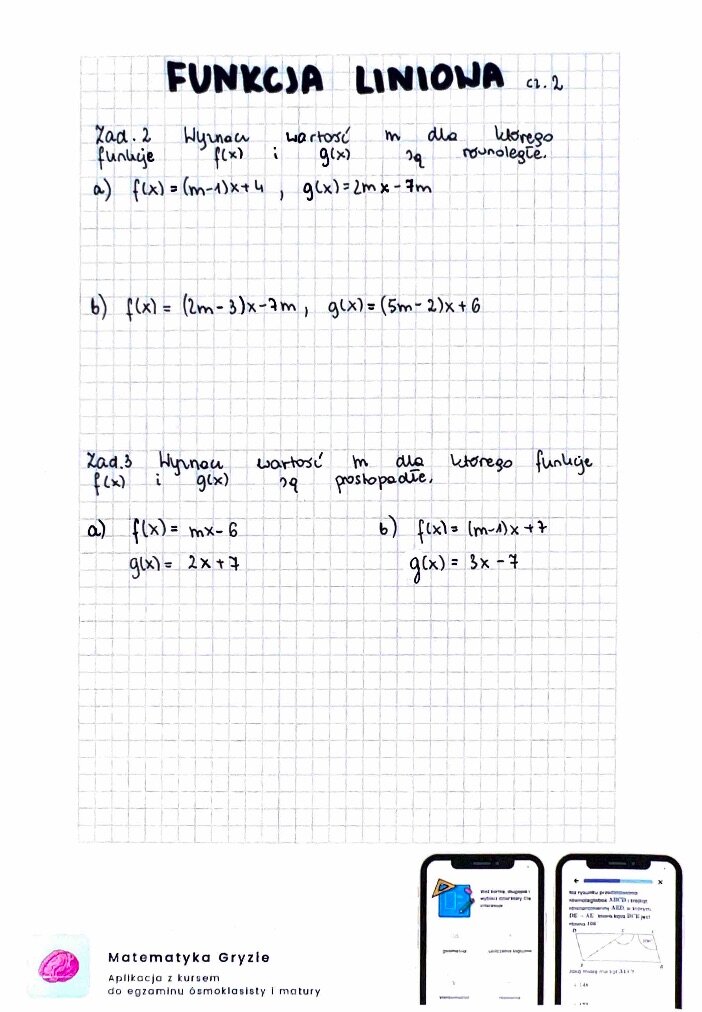 FUNKCJA LINIOWA cz. 2
Zad. 2 Wyznacz wartość m dla którego
funkcje f(x) i g(x) są równoległe.
a) f(x) = (m-1)x+4 , g(x)=2mx-7m
b) f(x) = (2m-3)x-7m, g(x)=(5m-2)x+6
Zad.3 Wyznacz wartość m dla którego funkcje
f(x) i g(x) są prostopadłe.
a) f(x) = mx-6
g(x) = 2x+7
b) f(x) = (m-1)x+7
g(x) = 3x-7
Matematyka Gryzie
Aplikacja z kursem
do egzaminu ósmoklasisty i matury
Na rysunku przedstawiono
równoległobok ABCD i trójkąt
równoramienny AED, w którym